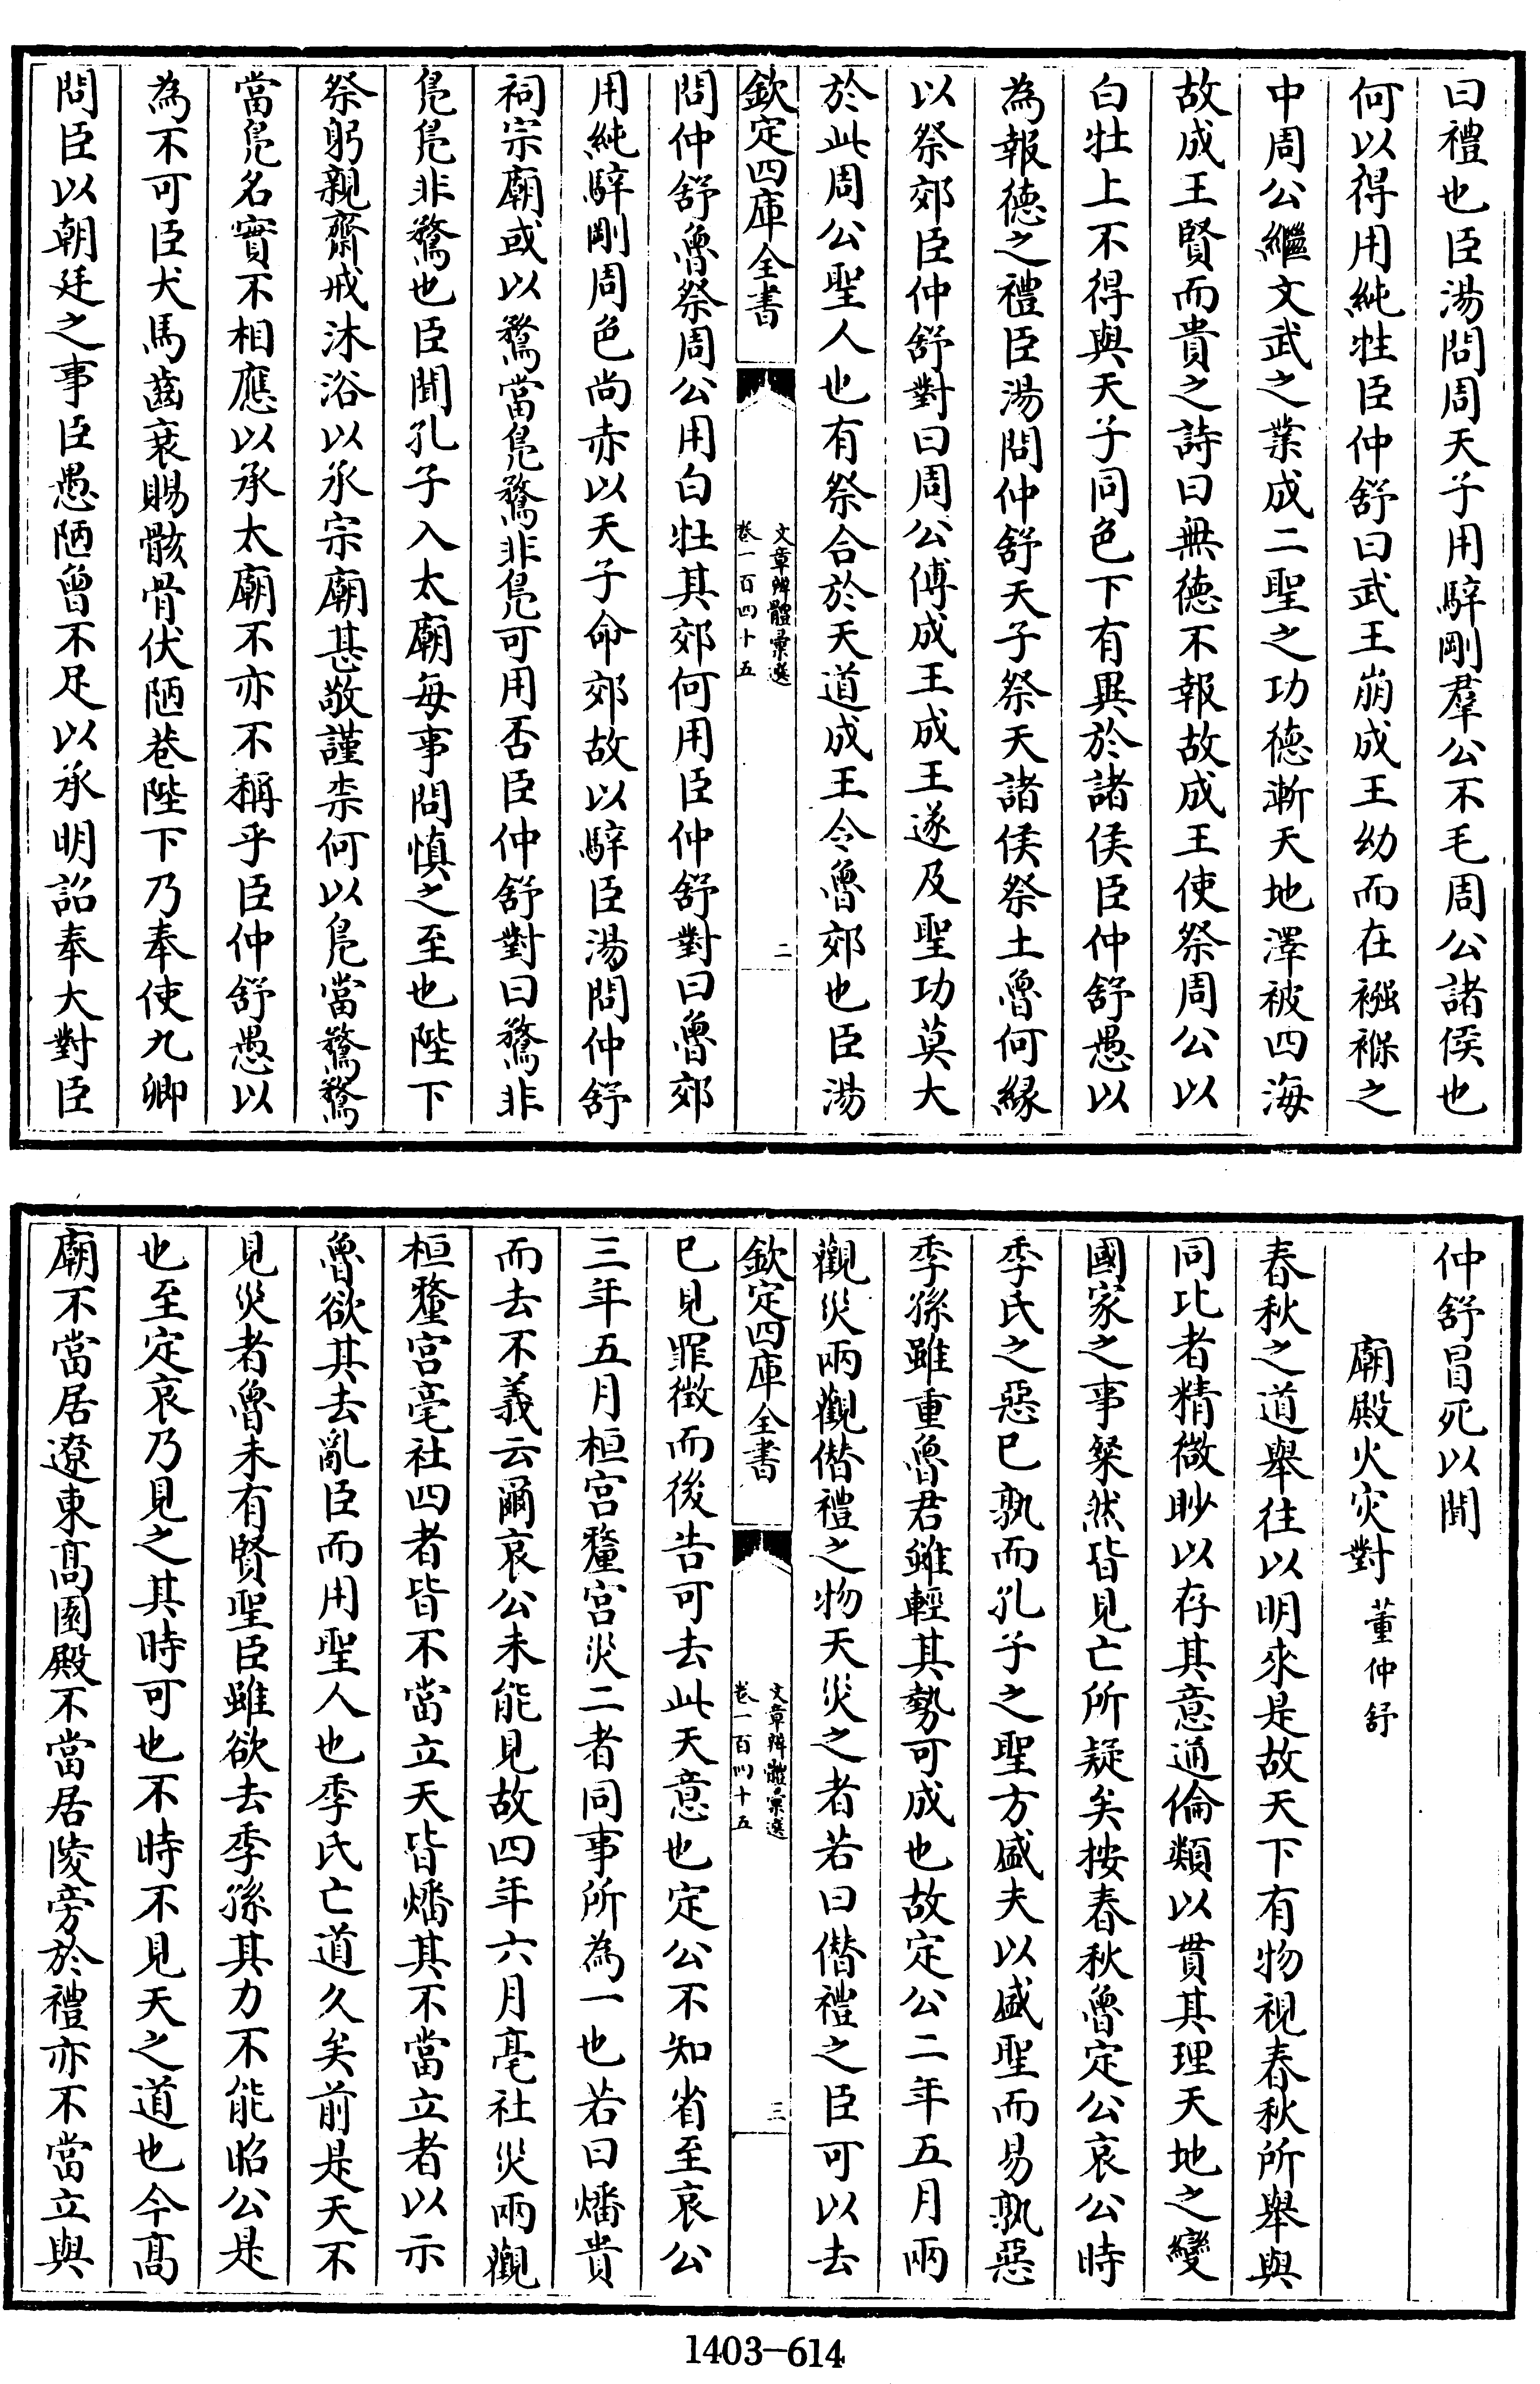 曰禮也臣湯問周天子用騂剛羣公不毛周公諸侯也
何以得用純牲臣仲舒曰武王崩成王幼而在襁褓之
中周公繼文武之業成二聖之功德漸天地澤被四海
故成王賢而貴之詩曰無德不報故成王使祭周公以
白牡上不得與天子同色下有異於諸侯臣仲舒愚以
為報德之禮臣湯問仲舒天子祭天諸侯祭土魯何緣
以祭郊臣仲舒對曰周公傅成王成王遂及聖功莫大
於此周公聖人也有祭合於天道成王令魯郊也臣湯
欽定四庫全書
文章辨體彙選
卷一百四十五
二
問仲舒魯祭周公用白牡其郊何用臣仲舒對曰魯郊
用純騂剛周色尚赤以天子命郊故以騂臣湯問仲舒
祠宗廟或以鶩當鳧鶩非鳧可用否臣仲舒對曰鶩非
鳧鳧非鶩也臣聞孔子入太廟每事問慎之至也陛下
祭躬親齋戒沐浴以承宗廟甚敬謹柰何以鳧當鶩鶩
當鳧名實不相應以承太廟不亦不稱乎臣仲舒愚以
為不可臣犬馬齒衰賜骸骨伏陋巷陛下乃奉使九卿
問臣以朝廷之事臣愚陋曾不足以承明詔奉大對臣
仲舒冒死以聞
廟殿火灾對 董仲舒
春秋之道舉往以明來是故天下有物視春秋所舉與
同比者精微眇以存其意通倫類以貫其理天地之變
國家之事粲然皆見亡所疑矣按春秋魯定公哀公時
季氏之惡已孰而孔子之聖方盛夫以盛聖而易孰惡
季孫雖重魯君雖輕其勢可成也故定公二年五月兩
觀災兩觀僭禮之物天災之者若曰僭禮之臣可以去
欽定四庫全書
文章辨體彙選
卷一百四十五
三
已見罪徴而後告可去此天意也定公不知省至哀公
三年五月桓宫釐宫災二者同事所為一也若曰燔貴
而去不義云爾哀公未能見故四年六月亳社災兩觀
桓釐宫亳社四者皆不當立天皆燔其不當立者以示
魯欲其去亂臣而用聖人也季氏亡道久矣前是天不
見災者魯未有賢聖臣雖欲去季孫其力不能昭公是
也至定哀乃見之其時可也不時不見天之道也今高
廟不當居遼東高園殿不當居陵旁於禮亦不當立與
1403-614